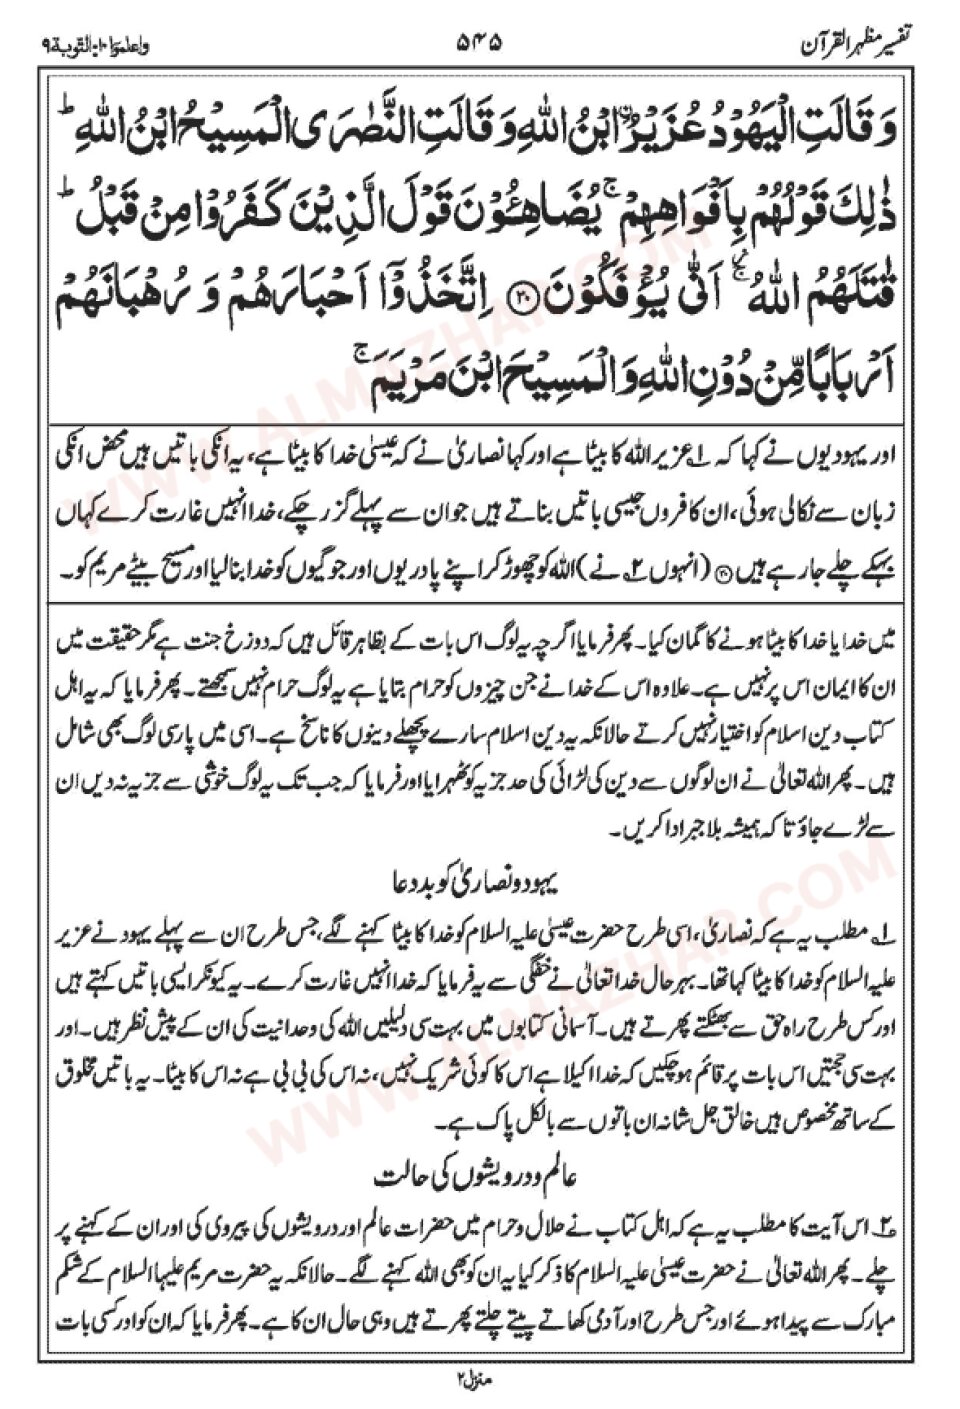 تفسیر مظہر القرآن
۵۴۵
واعلموا ۱۰: التوبۃ ۹
وَقَالَتِ الْيَهُوْدُ عُزَيْرُ ۨابْنُ اللّٰهِ وَقَالَتِ النَّصٰرَى الْمَسِيْحُ ابْنُ اللّٰهِ ؕ
ذٰلِكَ قَوْلُهُمْ بِاَفْوَاهِهِمْ ۚ يُضَاهِـُٔوْنَ قَوْلَ الَّذِيْنَ كَفَرُوْا مِنْ قَبْلُ ؕ
قٰتَلَهُمُ اللّٰهُ ۚ اَنّٰى يُؤْفَكُوْنَ ۝۳۰ اِتَّخَذُوْٓا اَحْبَارَهُمْ وَ رُهْبَانَهُمْ
اَرْبَابًا مِّنْ دُوْنِ اللّٰهِ وَالْمَسِيْحَ ابْنَ مَرْيَمَ ۚ
اور یہودیوں نے کہا کہ ۱؎ عزیر اللہ کا بیٹا ہے اور کہا نصاریٰ نے کہ عیسیٰ خدا کا بیٹا ہے، یہ انکی باتیں ہیں محض انکی
زبان سے نکالی ہوئی، ان کافروں جیسی باتیں بناتے ہیں جو ان سے پہلے گزر چکے، خدا انہیں غارت کرے کہاں
بہکے چلے جا رہے ہیں ۝۳۰ (انہوں ۲؎ نے) اللہ کو چھوڑ کر اپنے پادریوں اور جوگیوں کو خدا بنا لیا اور مسیح بیٹے مریم کو۔
میں خدا یا خدا کا بیٹا ہونے کا گمان کیا۔ پھر فرمایا اگرچہ یہ لوگ اس بات کے بظاہر قائل ہیں کہ دوزخ جنت ہے مگر حقیقت میں
ان کا ایمان اس پر نہیں ہے۔ علاوہ اس کے خدا نے جن چیزوں کو حرام بتایا ہے یہ لوگ حرام نہیں سمجھتے۔ پھر فرمایا کہ یہ اہل
کتاب دین اسلام کو اختیار نہیں کرتے حالانکہ یہ دین اسلام سارے پچھلے دینوں کا ناسخ ہے۔ اسی میں پارسی لوگ بھی شامل
ہیں۔ پھر اللہ تعالیٰ نے ان لوگوں سے دین کی لڑائی کی حد جزیہ کو ٹھہرایا اور فرمایا کہ جب تک یہ لوگ خوشی سے جزیہ نہ دیں ان
سے لڑے جاؤ تا کہ ہمیشہ بلا جبر ادا کریں۔
یہود و نصاریٰ کو بددعا
۱؎ مطلب یہ ہے کہ نصاریٰ، اسی طرح حضرت عیسیٰ علیہ السلام کو خدا کا بیٹا کہنے لگے، جس طرح ان سے پہلے یہود نے عزیر
علیہ السلام کو خدا کا بیٹا کہا تھا۔ بہر حال خدا تعالیٰ نے خفگی سے یہ فرمایا کہ خدا انہیں غارت کرے۔ یہ کیونکر ایسی باتیں کہتے ہیں
اور کس طرح راہ حق سے بھٹکتے پھرتے ہیں۔ آسمانی کتابوں میں بہت سی دلیلیں اللہ کی وحدانیت کی ان کے پیش نظر ہیں۔ اور
بہت سی حجتیں اس بات پر قائم ہو چکیں کہ خدا اکیلا ہے اس کا کوئی شریک نہیں، نہ اس کی بی بی ہے نہ اس کا بیٹا۔ یہ باتیں مخلوق
کے ساتھ مخصوص ہیں خالق جل شانہ ان باتوں سے بالکل پاک ہے۔
عالم و درویشوں کی حالت
۲؎ اس آیت کا مطلب یہ ہے کہ اہل کتاب نے حلال و حرام میں حضرات عالم اور درویشوں کی پیروی کی اور ان کے کہنے پر
چلے۔ پھر اللہ تعالیٰ نے حضرت عیسیٰ علیہ السلام کا ذکر کیا یہ ان کو بھی اللہ کہنے لگے۔ حالانکہ یہ حضرت مریم علیہا السلام کے شکم
مبارک سے پیدا ہوئے اور جس طرح اور آدمی کھاتے پیتے چلتے پھرتے ہیں وہی حال ان کا ہے۔ پھر فرمایا کہ ان کو اور کسی بات
منزل ۲
WWW.ALMAZHAR.COM
WWW.ALMAZHAR.COM